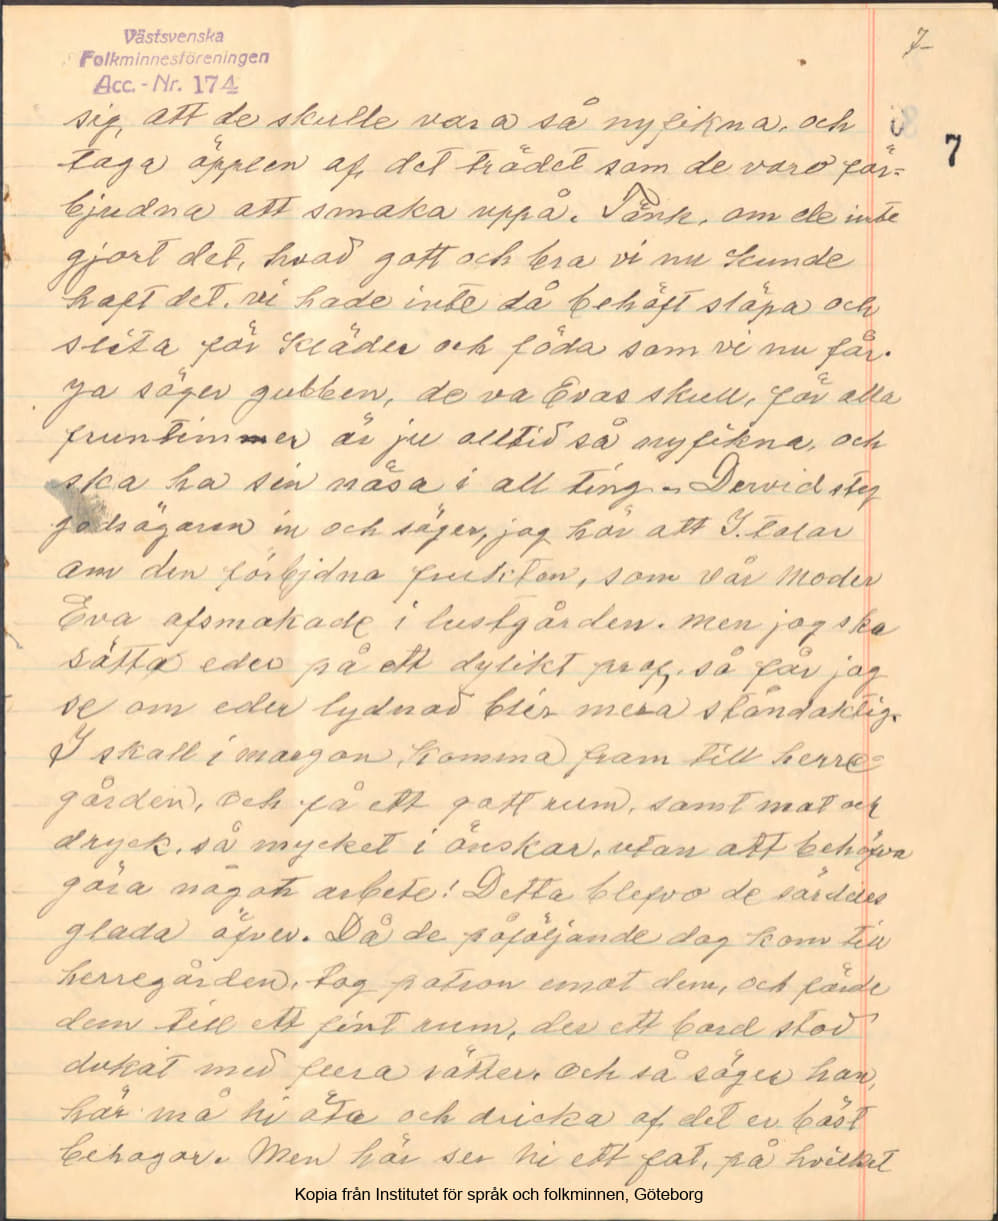 Västsvenska
Folkminnesföreningen
Acc. - Nr. 174
7-
7
sig, att de skulle vara så nyfikna, och
taga äpplen af, det trädet som de voro för=
bjudna att smaka uppå. Tänk, om de inte
gjort det, hvad gott och bra vi nu kunde
haft det. vi hade inte då behöft släpa och
slita för kläder och föda som vi nu får.
ja säger gubben, de va Evas skull, för alla
fruntimmer är ju alltid så nyfikna, och
ska ha sin näsa i all ting. Dervid steg
godsägaren in och säger, jag hör att I. talar
om den förbjdna frukten, som vår moder
Eva afsmakade i lustgården. men jag ska
sätta eder på ett dylikt prof, så får jag
se om eder lydnad blir mera ståndaktig.
I skall i morgon, komma fram till herre=
gården, och få ett gott rum, samt mat och
dryck, så mycket i önskar, utan att behöfva
göra något arbete! Detta blefvo de särdeles
glada öfver. Då de påföljande dag kom till
herregården, tog patron emot dem, och förde
dem till ett fint rum, der ett bord stod
dukat med flera rätter. och så säger han,
här må ni äta och dricka af det er bäst
behagar. Men här ser ni ett fat, på hvilket
Kopia från Institutet för språk och folkminnen, Göteborg